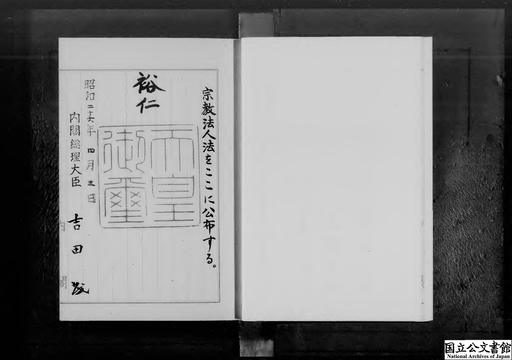 宗教法人法をここに公布する。
裕仁
天皇御璽
昭和二十六年四月三日
内閣総理大臣 吉田茂
国立公文書館
National Archives of Japan